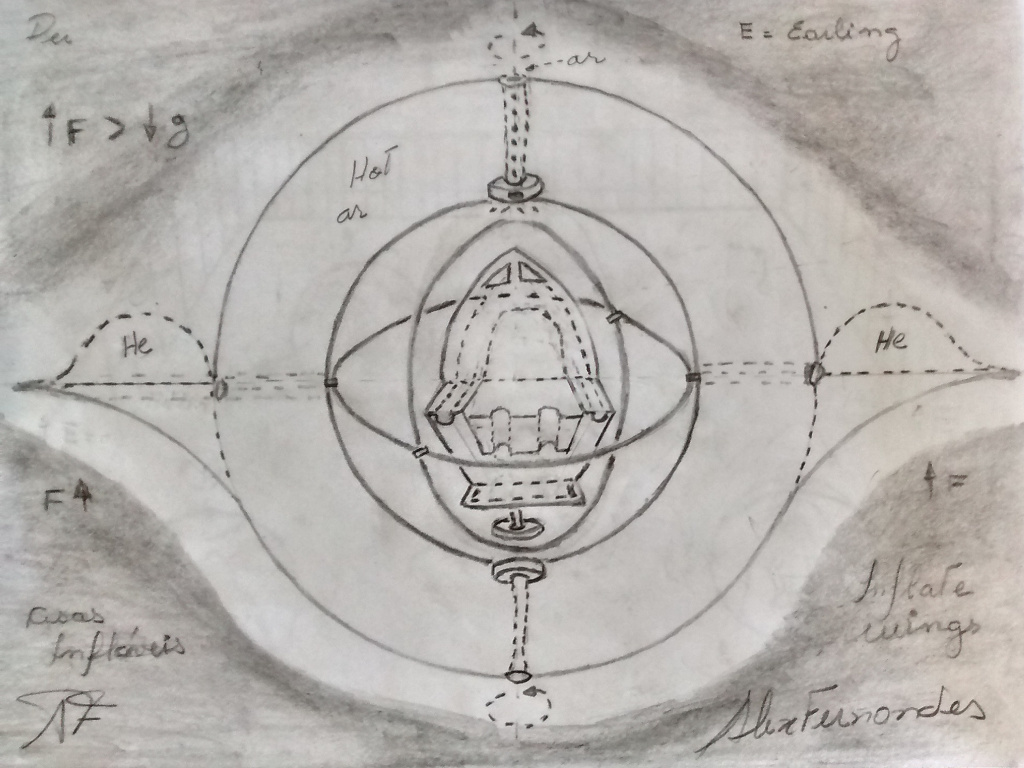 E = Earling
ar
↑F > ↓g
Hot
ar
He
He
F↑
↑F
Asas
Infláveis
Inflate
wings
AF
Alex Fernandes